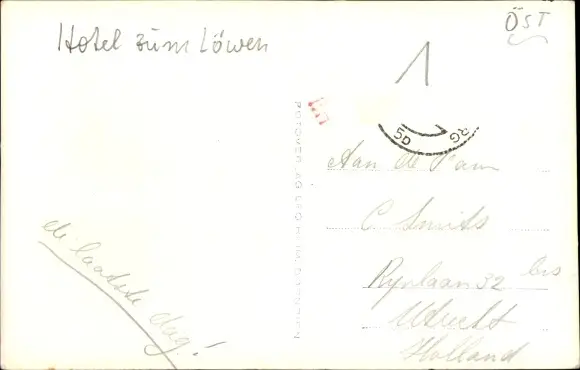 Hotel zum Löwen
ÖST
1
5D
RG
Aan de Fam
C. Smits
Rijnlaan 32 bis
Utrecht
Holland
de laatste dag!